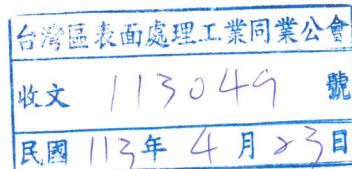 台灣區表面處理工業同業公會
收文 113049 號
民國 113 年 4 月 23 日